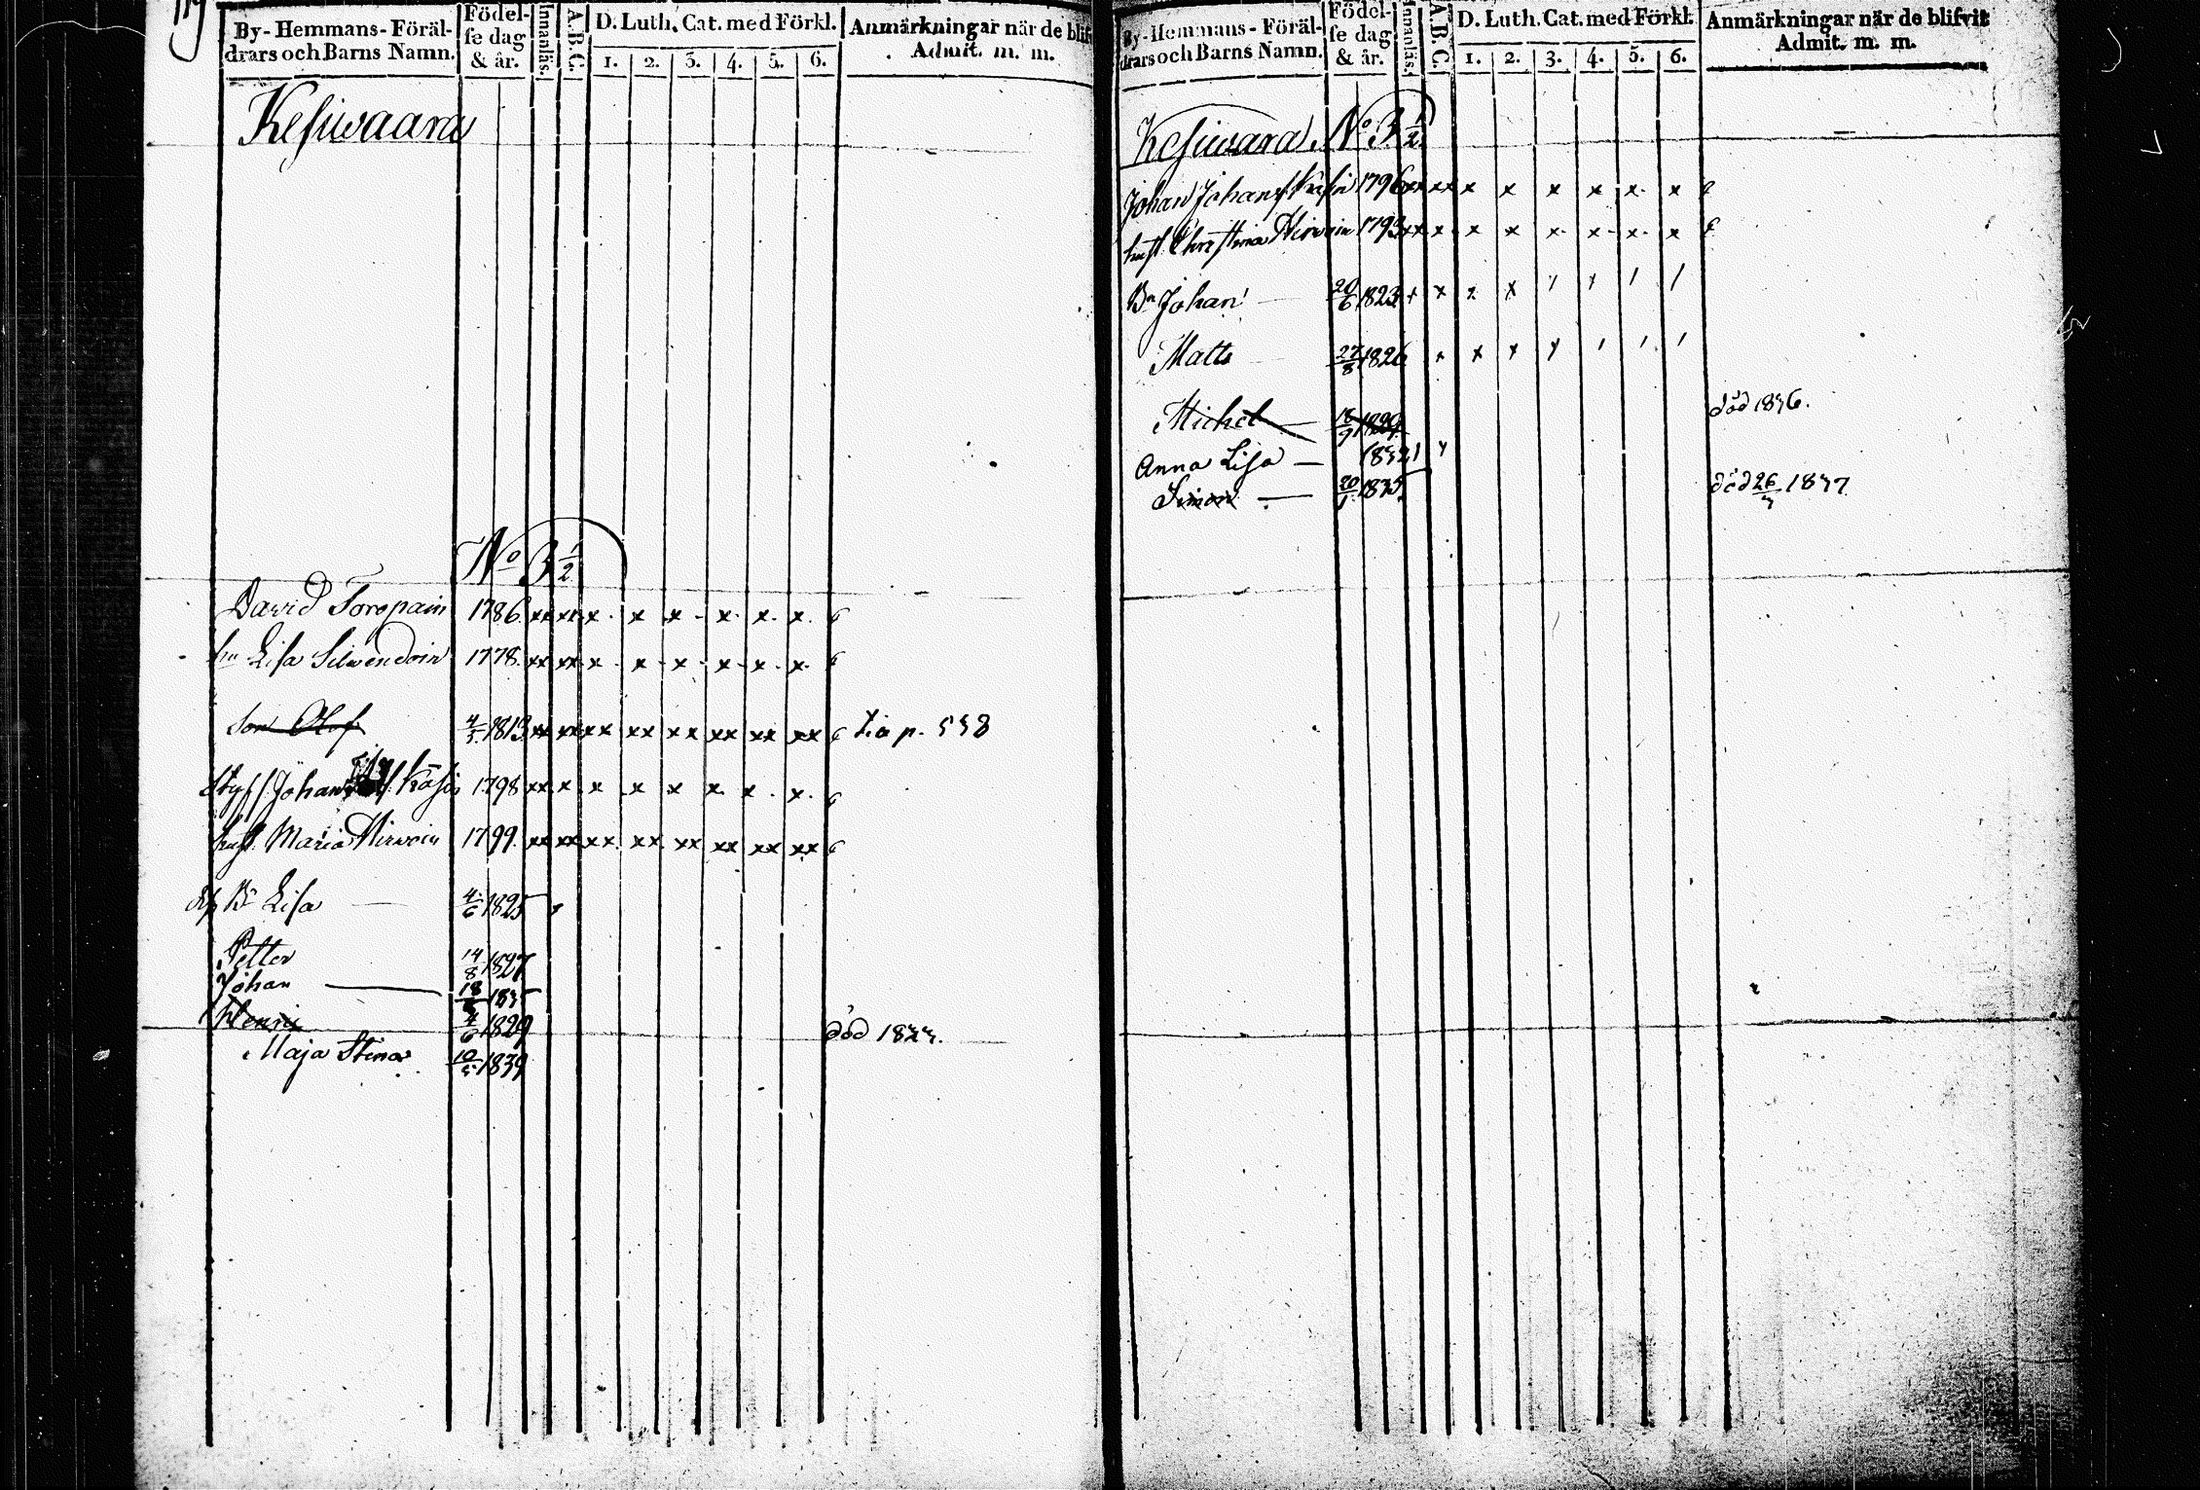 119
By-Hemmans-Föräl-
drars och Barns Namn.
Födel-
se dag
& år.
Innanläs.
A.B.C.
D. Luth. Cat. med Förkl.
1. 2. 3. 4. 5. 6.
Anmärkningar när de blif
Admit. m. m.
Kesiwaara
No 3 1/2
David Toropain 1786. xx xx x x x x x x
hu Lisa Silwendoin 1778. xx xx x x x x x x
Son Olof 4/5 1813 xx xx xx xx xx xx xx xx p. 558
Styfs. Johan Käsin 1798 xx x x x x x x x
hust. Maria Hirwoin 1799. xx xx xx xx xx xx xx xx
Bn Lisa 4/6 1825
Petter 14/8 1827
Johan 18/8 1835
Henric 4/6 1829 död 1833.
Maja Stina 10/5 1839
By-Hemmans-Föräl-
drars och Barns Namn.
Födel-
se dag
& år.
Innanläs.
A.B.C.
D. Luth. Cat. med Förkl.
1. 2. 3. 4. 5. 6.
Anmärkningar när de blifvit
Admit. m. m.
Kesiwara No 3 1/2
Johan Johans. Käsin 1796 xx xx x x x x x x
hust. Christina Hirwoin 1793 xx x x x x x x x
Bn Johan 20/6 1823 x x x x
Matts 27/8 1826 x x x
Michel 18/9 1829 död 1836.
Anna Lisa 1832
Simon 20/1 1835 död 26/3 1837.